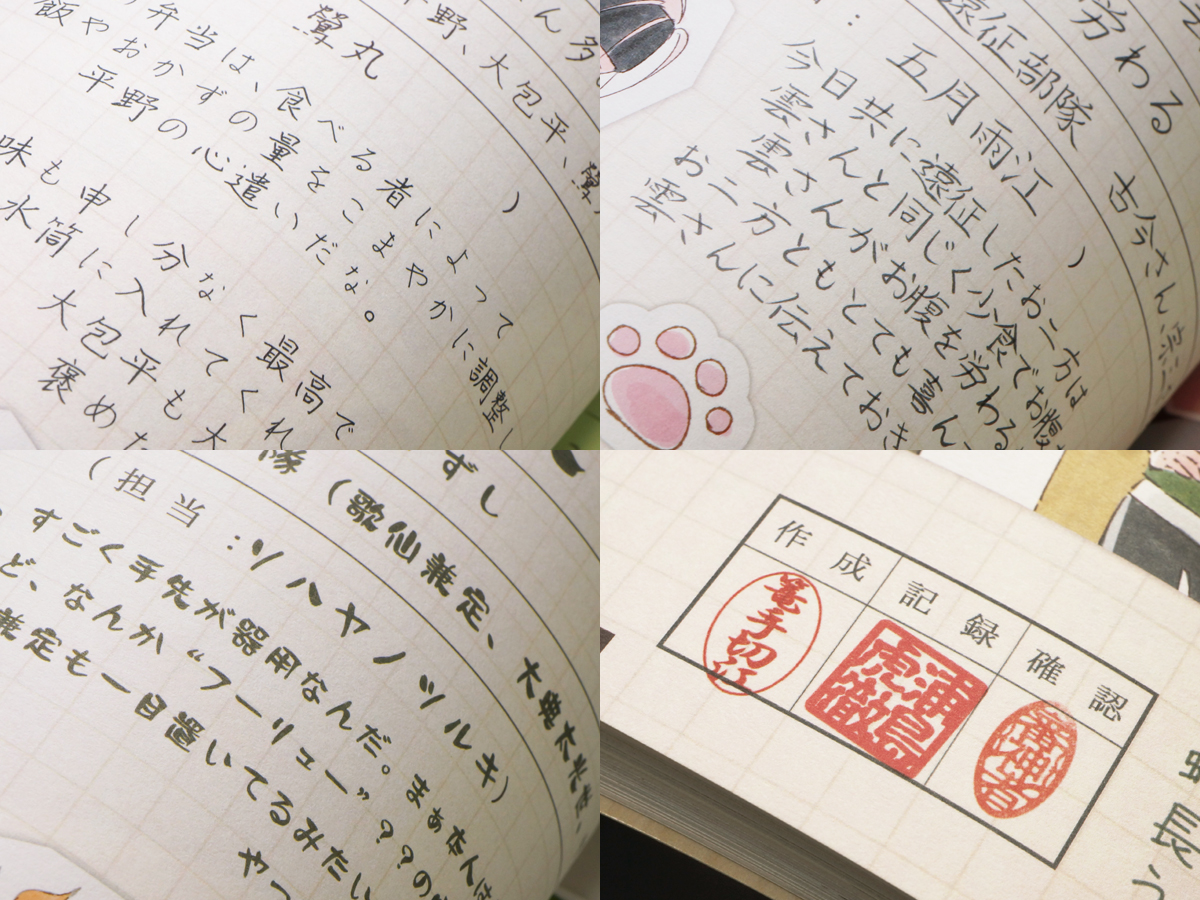 ん多
平野、大包平、鶯
鶯丸 )
弁当は、食べる者によって
飯やおかずの量をこまやかに調整し
平野の心遣いだな。
味も申し分なく最高で
水筒に入れてくれ
大包平も大
褒めた
労わる
古今さん
遠征部隊
: 五月雨江 )
今日共に遠征したお二方は
雲さんと同じく少食でお腹
雲さんがお腹を労わる
お二方ともとても喜ん
雲さんに伝えておき
ずし
隊(歌仙兼定、大典太光世、
(担当:ソハヤノツルキ)
すごく手先が器用なんだ。まぁなんは
ど、なんか“フーリュー”??の
兼定も一目置いてるみたい
やつ
作成
記録
確認
篭手切江
浦島虎徹
長
う